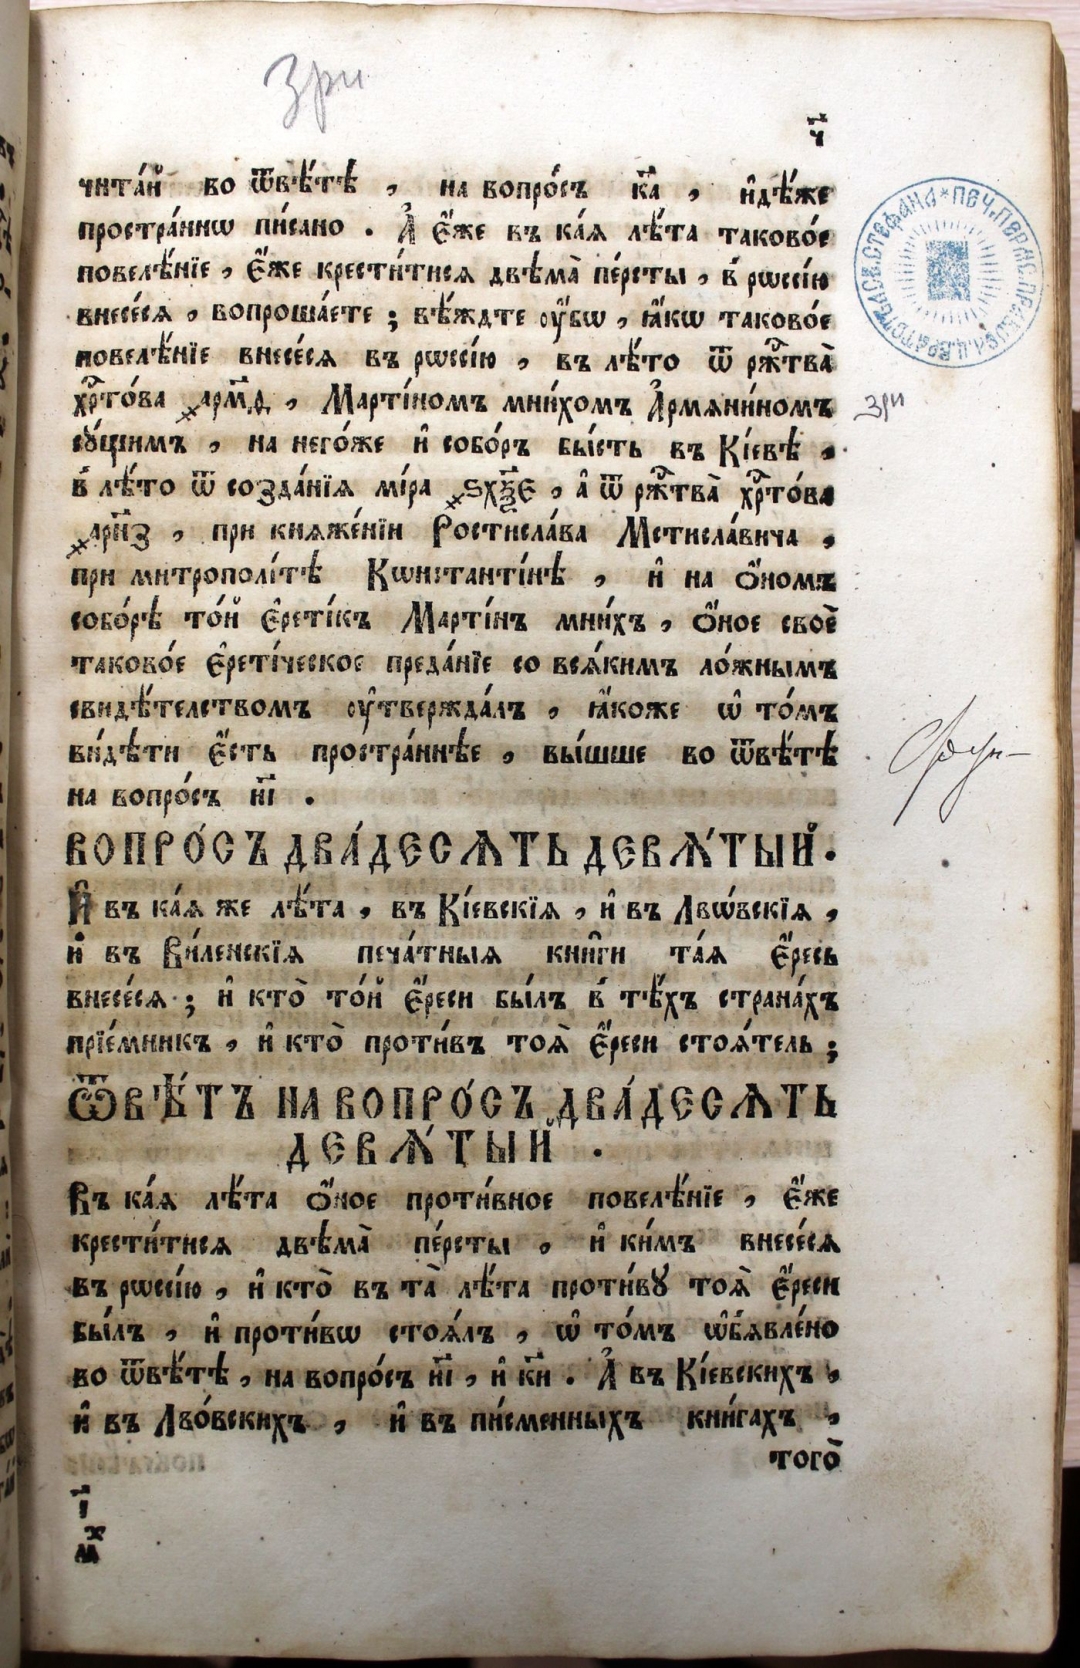 Зри
ч҃
чита́й во ѿвѣ́тѣ , на вопро́съ к҃а , и҆дѣ́же
простра́ннѡ пи́сано . А҆ є҆́же въ ка́ѧ лѣ́та таково́е
повелѣ́нїе , є҆́же крести́тисѧ двѣма̀ пе́рсты , в̾ рѡссі́ю
внесе́сѧ , вопроша́ете ; вѣ́ждте ᲂу҆́бѡ , ꙗ҆́кѡ таково́е
повелѣ́нїе внесе́сѧ въ рѡссі́ю , въ лѣ́то ѿ рж҇тва̀
хр҇то́ва ҂арм҃д , Марті́номъ мни́хомъ А҆рмѧни́номъ
зри
сꙋ́щимъ , на него́же и҆ собо́ръ бы́сть въ Кі́евѣ ,
в̾ лѣ́то ѿ созда́нїѧ мі́ра ҂ѕхѯ҃є , а҆ ѿ рж҇тва̀ хр҇то́ва
҂арн҃з , при кнѧже́нїи Ростисла́ва Мстисла́вича ,
при митрополі́тѣ Кѡнстанті́нѣ , и҆ на ѻ҆́номъ
собо́рѣ то́й є҆реті́къ Марті́нъ мни́хъ , ѻ҆́ное своѐ
таково́е є҆реті́ческое преда́нїе со всѧ́кимъ ло́жнымъ
свидѣ́телствомъ ᲂу҆твержда́лъ , ꙗ҆́коже ѡ҆ то́мъ
ви́дѣти є҆́сть простра́ннѣе , вы́шше во ѿвѣ́тѣ
на вопро́съ н҃і .
ВОПРО́СЪ ДВА́ДЕСѦТЬ ДЕВѦ́ТЫЙ.
И҆ въ ка́ѧ же лѣ́та , въ Кі́евскїѧ , и҆ въ Лвѡ́вскїѧ ,
и҆ въ Ви́ленскїѧ печа́тныѧ кни̑ги та́ѧ є҆́ресь
внесе́сѧ ; и҆ кто̀ то́й є҆́реси бы́лъ в̾ тѣ́хъ страна́хъ
прїе́мникъ , и҆ кто̀ проти́въ тоѧ̀ є҆́реси стоѧ́тель ;
ѾВѢ́ТЪ НА ВОПРО́СЪ ДВА́ДЕСѦТЬ
ДЕВѦ́ТЫЙ .
Въ ка́ѧ лѣ́та ѻ҆́ное проти́вное повелѣ́нїе , є҆́же
крести́тисѧ двѣма̀ пе́рсты , и҆ ки́мъ внесе́сѧ
въ рѡссі́ю , и҆ кто̀ въ та̀ лѣ́та проти́вꙋ тоѧ̀ є҆́реси
бы́лъ , и҆ проти́вѡ стоѧ́лъ , ѡ҆ то́мъ ѡ҆б̾ѧвле́но
во ѿвѣ́тѣ , на вопро́съ н҃і , и҆ к҃и . А҆ въ Кі́евскихъ ,
и҆ въ Лво́вскихъ , и҆ въ пи́сменныхъ кни́гахъ ,
того̀